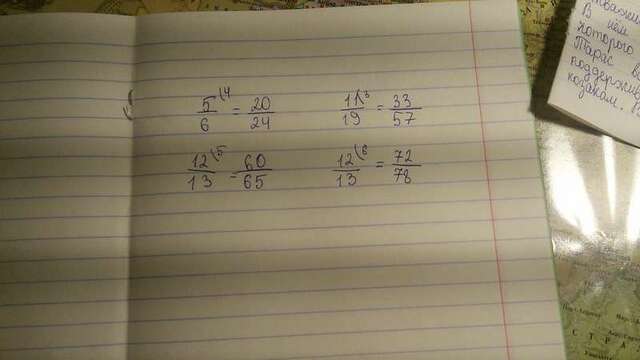 5/6 \4 = 20/24
11/19 \3 = 33/57
12/13 \5 = 60/65
12/13 \6 = 72/78
В нём
которого
Тарас в
поддержив
козакам.
С Т Р А